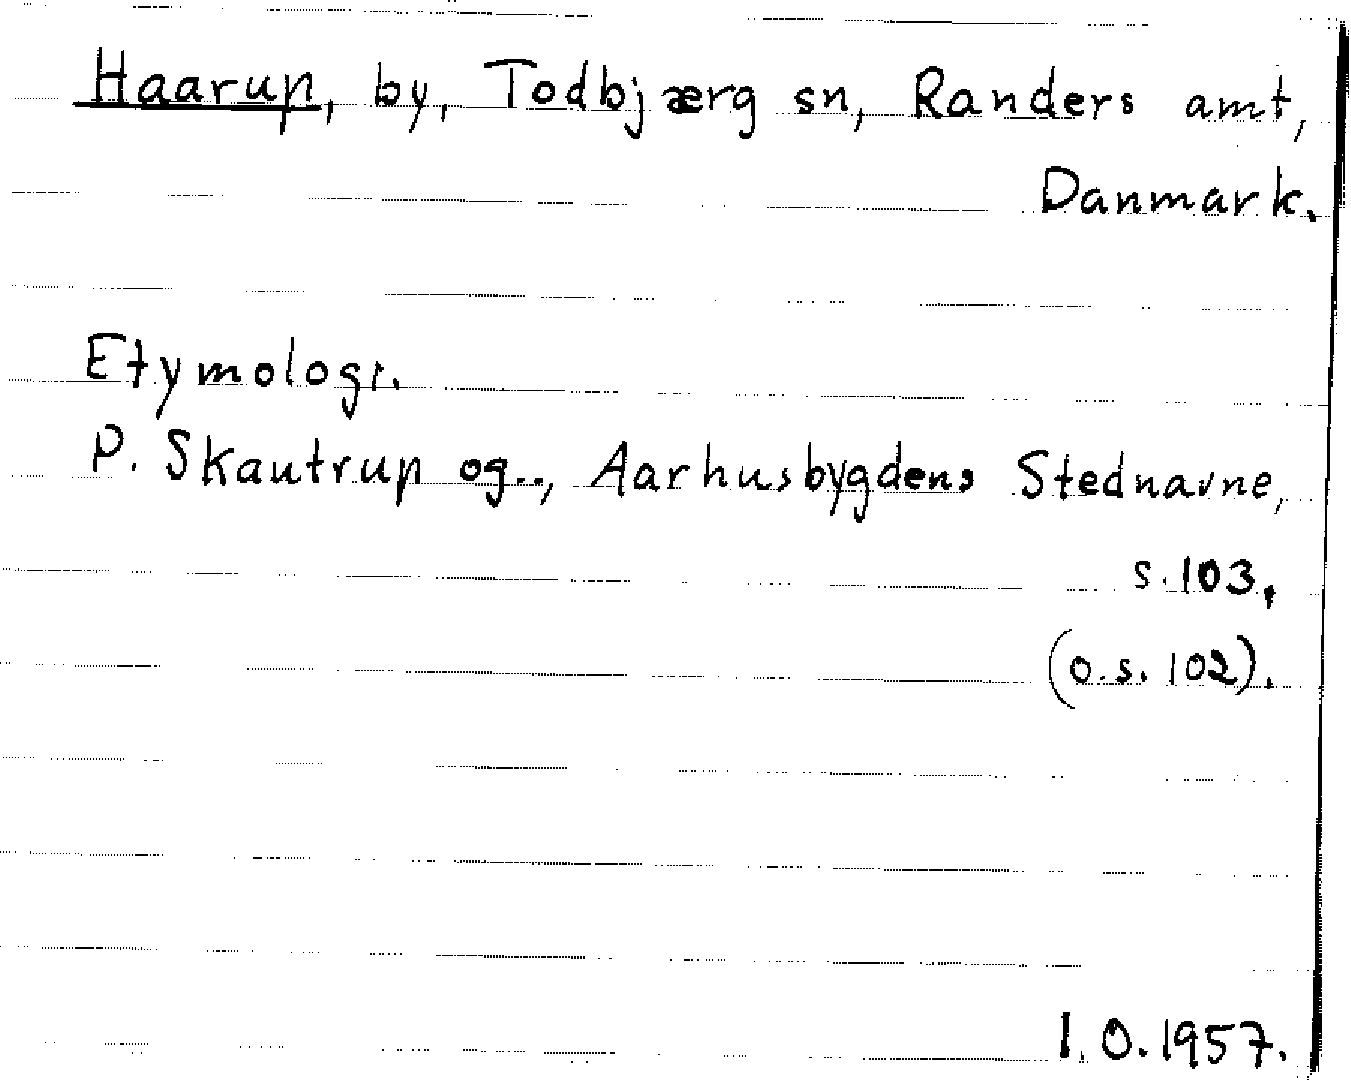 Haarup, by, Todbjærg sn, Randers amt,
Danmark.
Etymologi.
P. Skautrup og.., Aarhusbygdens Stednavne,
s. 103,
(o.s. 102).
I.O. 1957.